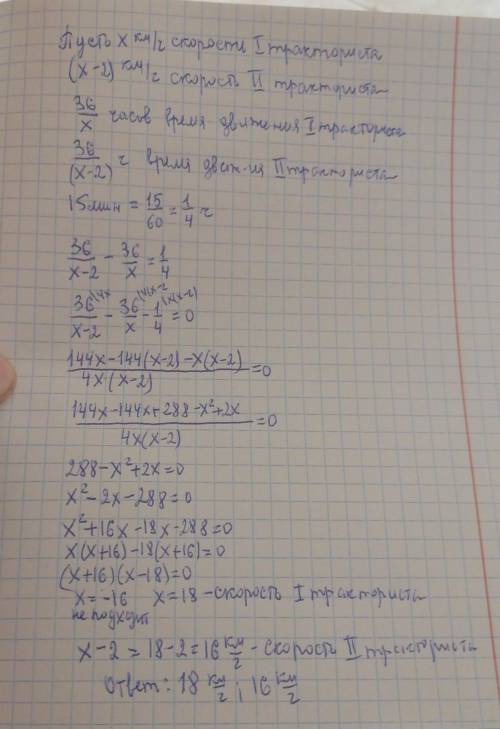 Пусть x км/ч скорости I тракториста
(x-2) км/ч скорость II тракториста
36/x часов время движения I тракториста
36/(x-2) ч время движ-ия II тракториста
15 мин = 15/60 = 1/4 ч
36/(x-2) - 36/x = 1/4
36/(x-2) - 36/x - 1/4 = 0
(144x-144(x-2)-x(x-2))/(4x(x-2)) = 0
(144x-144x+288-x²+2x)/(4x(x-2)) = 0
288-x²+2x=0
x²-2x-288=0
x²+16x-18x-288=0
x(x+16)-18(x+16)=0
(x+16)(x-18)=0
x=-16 x=18 - скорость I тракториста
не подходит
x-2 = 18-2=16 км/ч - скорость II тракториста
Ответ: 18 км/ч ; 16 км/ч